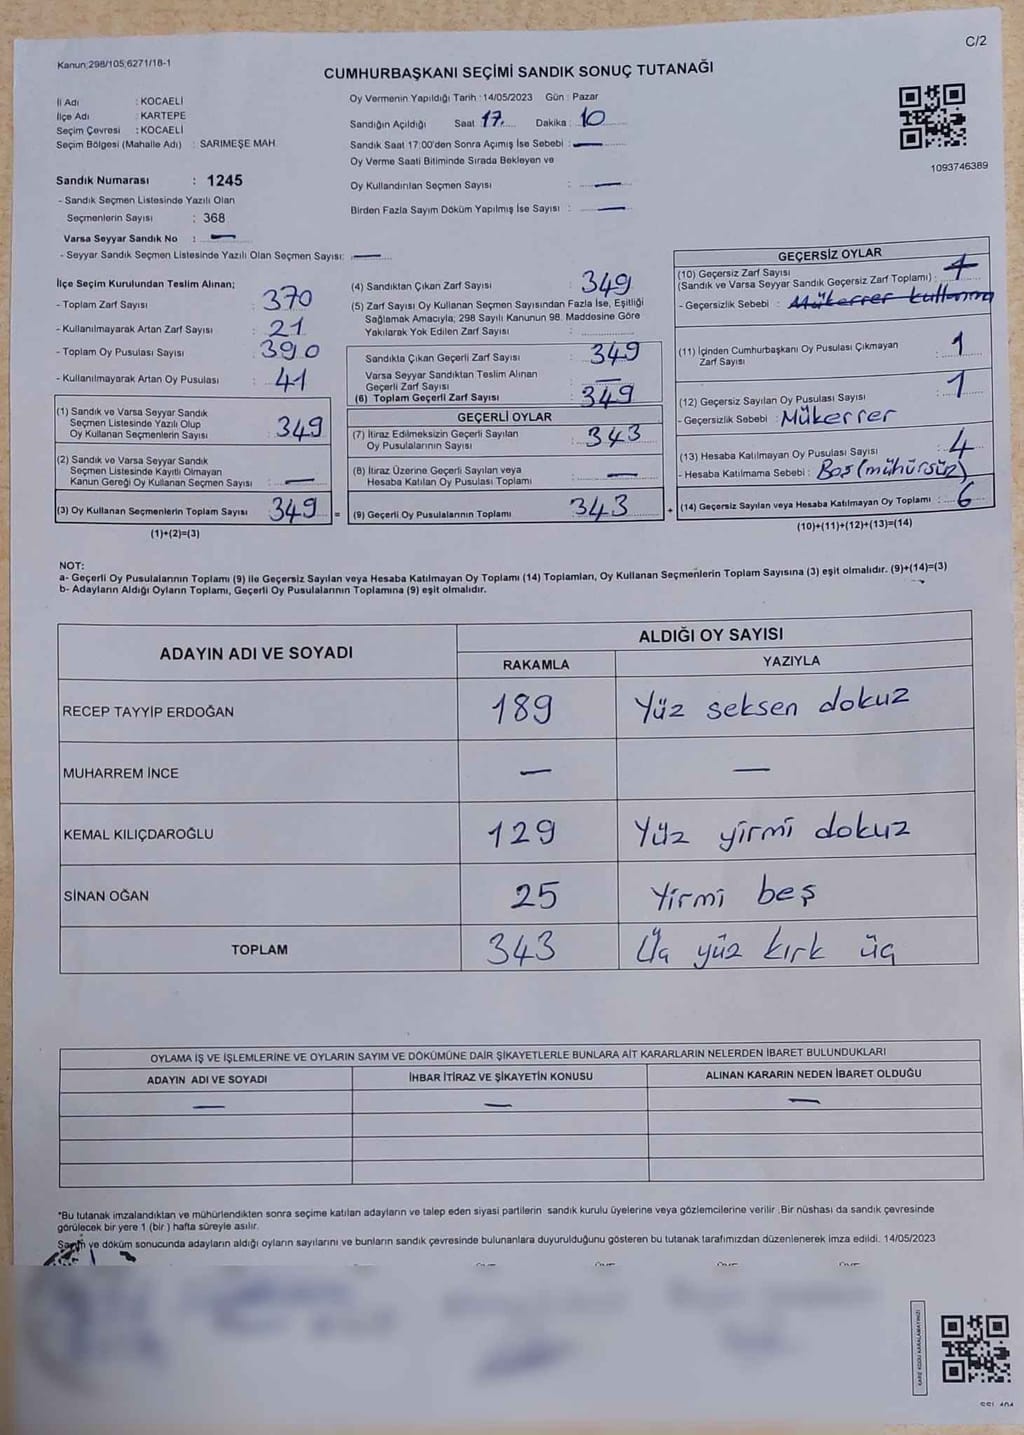 C/2
Kanun;298/105;6271/18-1
CUMHURBAŞKANI SEÇİMİ SANDIK SONUÇ TUTANAĞI
İl Adı : KOCAELİ
İlçe Adı : KARTEPE
Seçim Çevresi : KOCAELİ
Seçim Bölgesi (Mahalle Adı) : SARIMEŞE MAH.
Sandık Numarası : 1245
- Sandık Seçmen Listesinde Yazılı Olan
Seçmenlerin Sayısı : 368
Varsa Seyyar Sandık No : —
- Seyyar Sandık Seçmen Listesinde Yazılı Olan Seçmen Sayısı: —
Oy Vermenin Yapıldığı Tarih : 14/05/2023 Gün : Pazar
Sandığın Açıldığı Saat 17 Dakika : 10
Sandık Saat 17:00'den Sonra Açımış İse Sebebi : —
Oy Verme Saati Bitiminde Sırada Bekleyen ve
Oy Kullandırılan Seçmen Sayısı : —
Birden Fazla Sayım Döküm Yapılmış İse Sayısı : —
1093746389
İlçe Seçim Kurulundan Teslim Alınan;
- Toplam Zarf Sayısı : 370
- Kullanılmayarak Artan Zarf Sayısı : 21
- Toplam Oy Pusulası Sayısı : 390
- Kullanılmayarak Artan Oy Pusulası : 41
(1) Sandık ve Varsa Seyyar Sandık
Seçmen Listesinde Yazılı Olup
Oy Kullanan Seçmenlerin Sayısı : 349
(2) Sandık ve Varsa Seyyar Sandık
Seçmen Listesinde Kayıtlı Olmayan
Kanun Gereği Oy Kullanan Seçmen Sayısı : —
(3) Oy Kullanan Seçmenlerin Toplam Sayısı 349 =
(1)+(2)=(3)
(4) Sandıktan Çıkan Zarf Sayısı : 349
(5) Zarf Sayısı Oy Kullanan Seçmen Sayısından Fazla İse, Eşitliği
Sağlamak Amacıyla; 298 Sayılı Kanunun 98. Maddesine Göre
Yakılarak Yok Edilen Zarf Sayısı :
Sandıkta Çıkan Geçerli Zarf Sayısı : 349
Varsa Seyyar Sandıktan Teslim Alınan
Geçerli Zarf Sayısı : —
(6) Toplam Geçerli Zarf Sayısı : 349
GEÇERLİ OYLAR
(7) İtiraz Edilmeksizin Geçerli Sayılan
Oy Pusulalarının Sayısı : 343
(8) İtiraz Üzerine Geçerli Sayılan veya
Hesaba Katılan Oy Pusulası Toplamı : —
(9) Geçerli Oy Pusulalarının Toplamı 343 +
GEÇERSİZ OYLAR
(10) Geçersiz Zarf Sayısı
(Sandık ve Varsa Seyyar Sandık Geçersiz Zarf Toplamı) : 1
- Geçersizlik Sebebi : Mükerrer kullanma
(11) İçinden Cumhurbaşkanı Oy Pusulası Çıkmayan
Zarf Sayısı : 1
(12) Geçersiz Sayılan Oy Pusulası Sayısı : 1
- Geçersizlik Sebebi : Mükerrer
(13) Hesaba Katılmayan Oy Pusulası Sayısı : 4
- Hesaba Katılmama Sebebi : Boş (mühürsüz)
(14) Geçersiz Sayılan veya Hesaba Katılmayan Oy Toplamı : 6
(10)+(11)+(12)+(13)=(14)
NOT:
a- Geçerli Oy Pusulalarının Toplamı (9) ile Geçersiz Sayılan veya Hesaba Katılmayan Oy Toplamı (14) Toplamları, Oy Kullanan Seçmenlerin Toplam Sayısına (3) eşit olmalıdır. (9)+(14)=(3)
b- Adayların Aldığı Oyların Toplamı, Geçerli Oy Pusulalarının Toplamına (9) eşit olmalıdır.
ADAYIN ADI VE SOYADI
ALDIĞI OY SAYISI
RAKAMLA YAZIYLA
RECEP TAYYİP ERDOĞAN 189 Yüz seksen dokuz
MUHARREM İNCE — —
KEMAL KILIÇDAROĞLU 129 Yüz yirmi dokuz
SİNAN OĞAN 25 Yirmi beş
TOPLAM 343 Üç yüz kırk üç
OYLAMA İŞ VE İŞLEMLERİNE VE OYLARIN SAYIM VE DÖKÜMÜNE DAİR ŞİKAYETLERLE BUNLARA AİT KARARLARIN NELERDEN İBARET BULUNDUKLARI
ADAYIN ADI VE SOYADI İHBAR İTİRAZ VE ŞİKAYETİN KONUSU ALINAN KARARIN NEDEN İBARET OLDUĞU
— — —
*Bu tutanak imzalandıktan ve mühürlendikten sonra seçime katılan adayların ve talep eden siyasi partilerin sandık kurulu üyelerine veya gözlemcilerine verilir .Bir nüshası da sandık çevresinde
görülecek bir yere 1 (bir ) hafta süreyle asılır.
Sayım ve döküm sonucunda adayların aldığı oyların sayılarını ve bunların sandık çevresinde bulunanlara duyurulduğunu gösteren bu tutanak tarafımızdan düzenlenerek imza edildi. 14/05/2023
KARE KODU KARALAMAYINIZ!